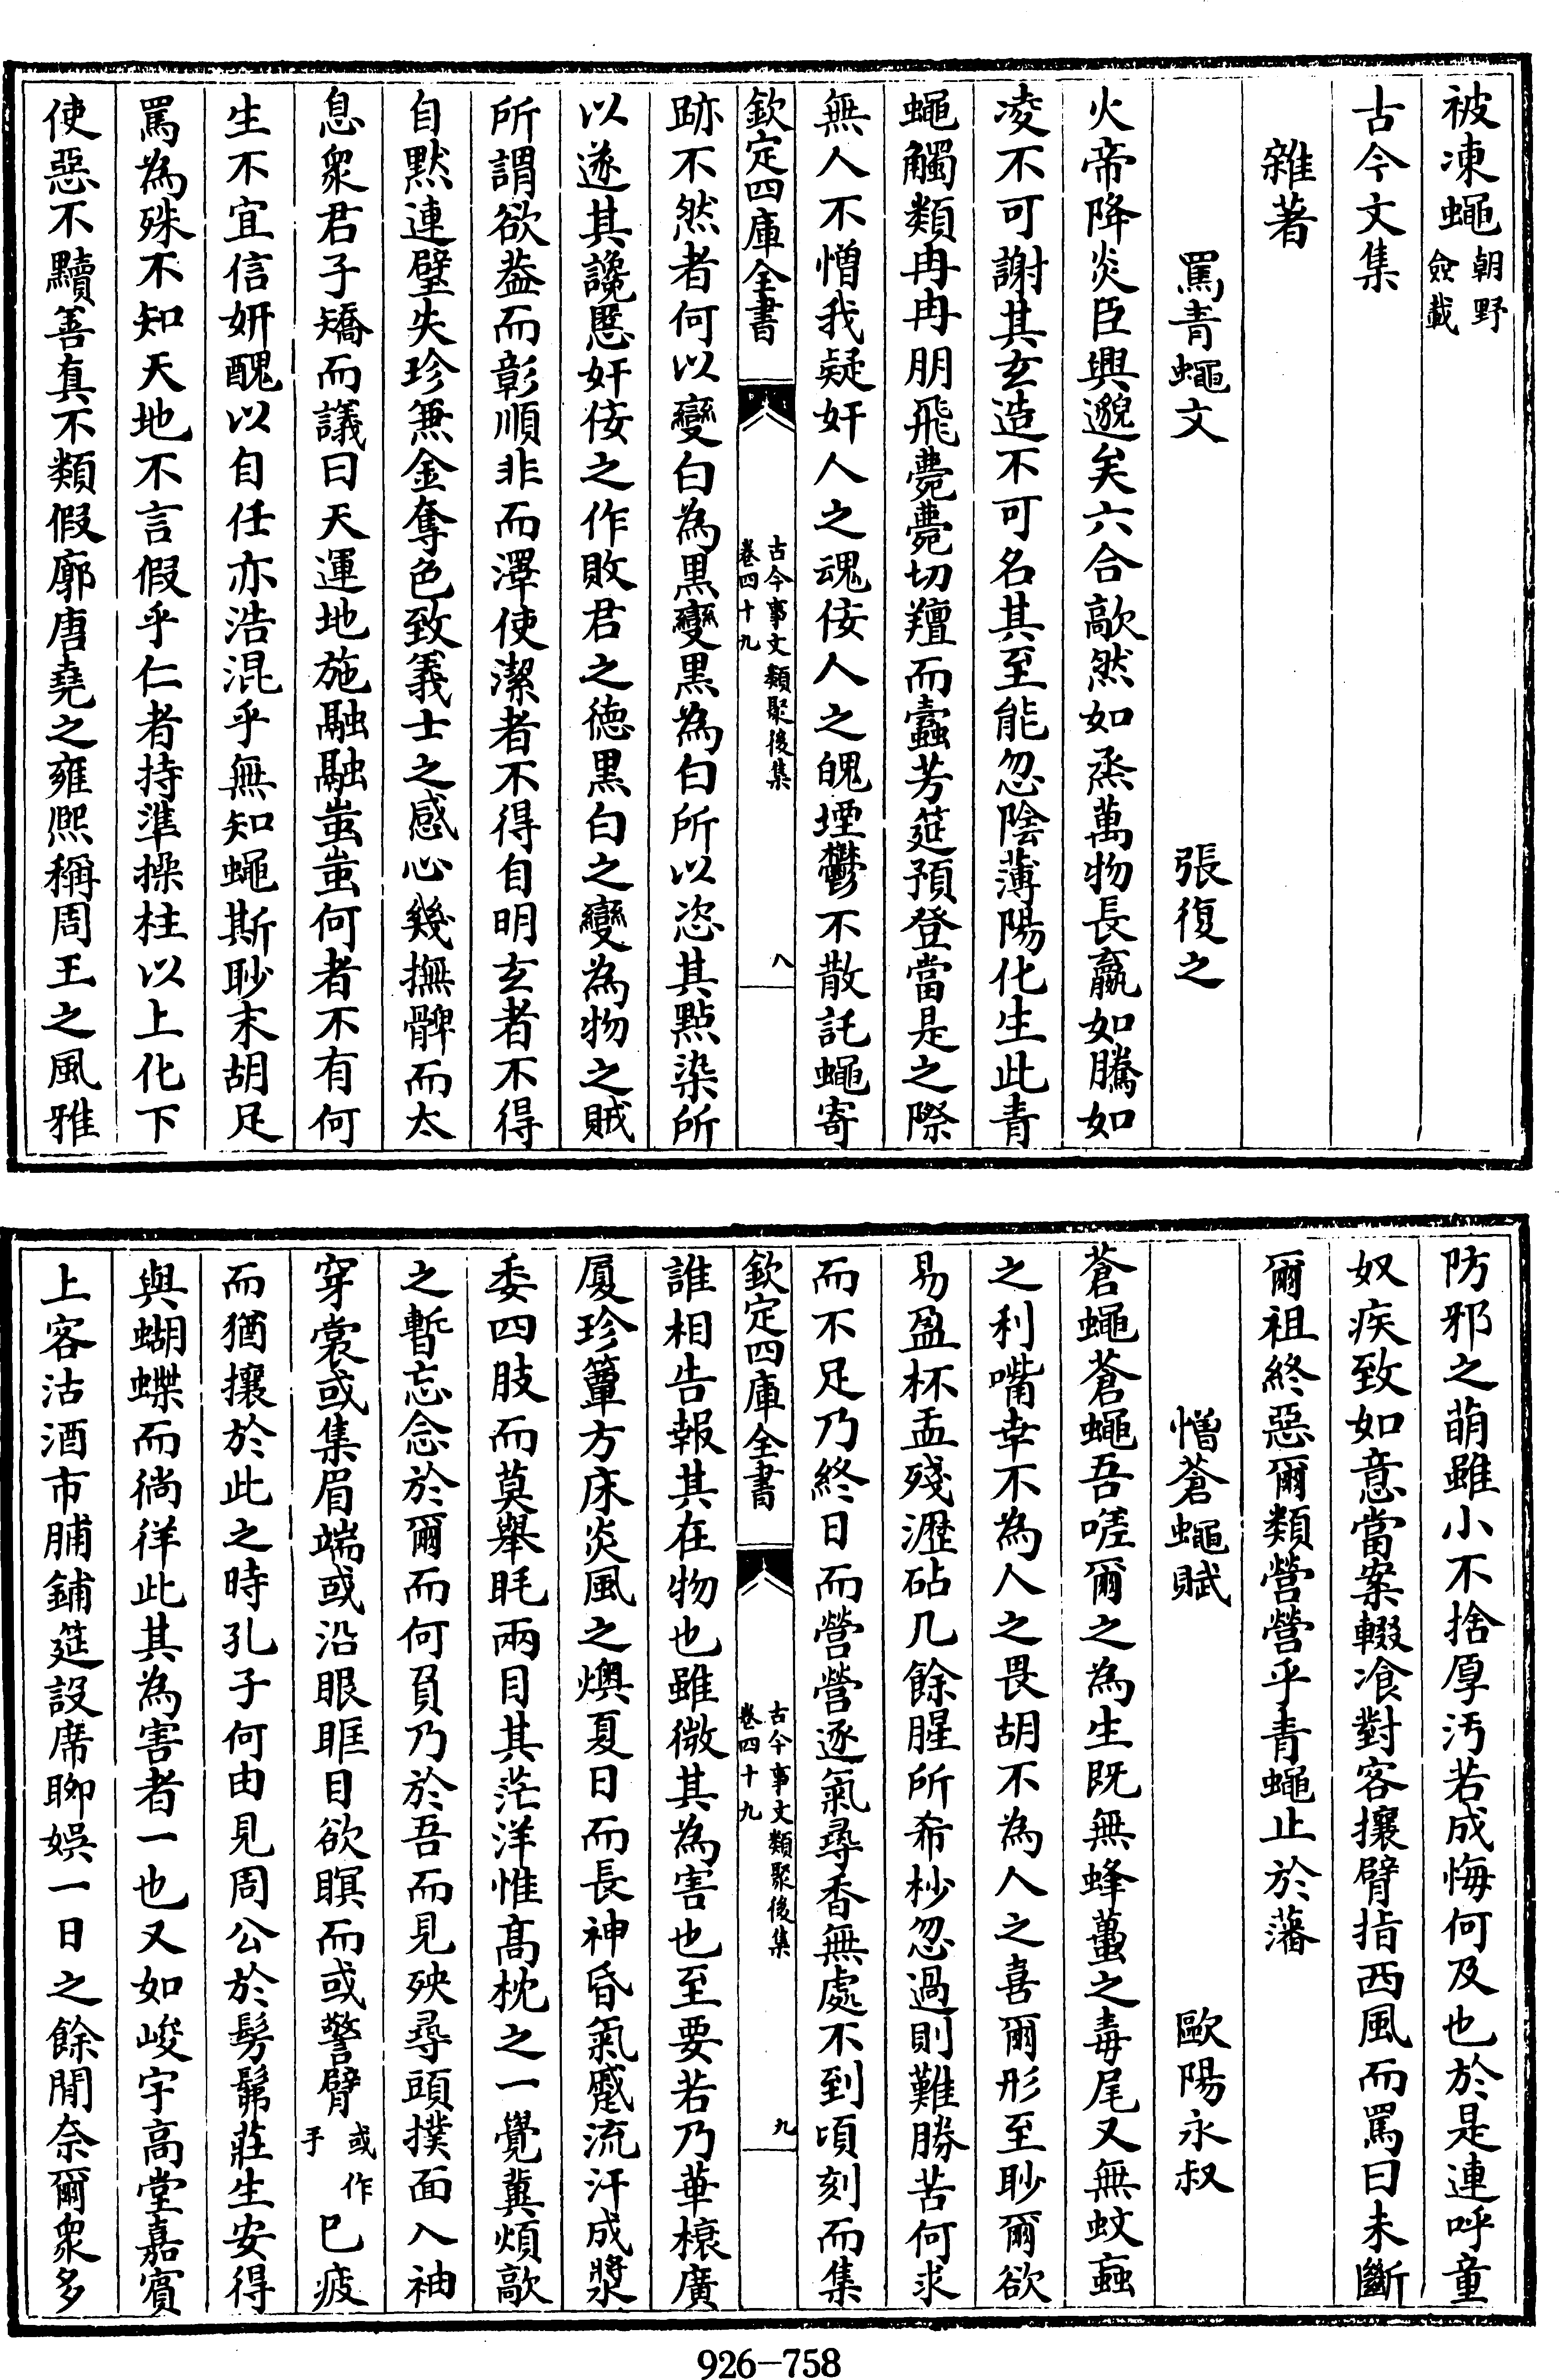 被凍蠅朝野僉載
古今文集
雜著
罵青蠅文 張復之
火帝降炎臣興邈矣六合歊然如烝萬物長嬴如騰如
凌不可謝其玄造不可名其至能忽陰薄陽化生此青
蠅觸類冉冉朋飛薨薨切羶而蠹芳筵預登當是之際
無人不憎我疑奸人之魂佞人之魄堙鬱不散託蠅寄
欽定四庫全書 古今事文類聚後集卷四十九 八
跡不然者何以變白為黒變黒為白所以恣其㸃染所
以遂其讒慝奸佞之作敗君之徳黒白之變為物之賊
所謂欲葢而彰順非而澤使潔者不得自明玄者不得
自黙連璧失珍兼金奪色致義士之感心幾撫髀而太
息衆君子矯而議曰天運地施融融蚩蚩何者不有何
生不宜信妍醜以自任亦浩混乎無知蠅斯眇末胡足
罵為殊不知天地不言假乎仁者持準操柱以上化下
使惡不黷善真不類假廓唐堯之雍熈稱周王之風雅
防邪之萌雖小不捨厚汚若成悔何及也於是連呼童
奴疾致如意當案輟飡對客攘臂指西風而罵曰未斷
爾祖終惡爾類營營乎青蠅止於藩
憎蒼蠅賦 歐陽永叔
蒼蠅蒼蠅吾嗟爾之為生既無蜂蠆之毒尾又無蚊䖟
之利嘴幸不為人之畏胡不為人之喜爾形至眇爾欲
易盈杯盂殘瀝砧几餘腥所希杪忽過則難勝苦何求
而不足乃終日而營營逐氣尋香無處不到頃刻而集
欽定四庫全書 古今事文類聚後集卷四十九 九
誰相告報其在物也雖微其為害也至要若乃華榱廣
厦珍簟方床炎風之燠夏日而長神昏氣蹙流汗成漿
委四肢而莫舉眊兩目其茫洋惟髙枕之一覺冀煩歊
之暫忘念於爾而何負乃於吾而見殃尋頭撲面入袖
穿裳或集眉端或沿眼眶目欲瞑而或警臂或作手已疲
而猶攘於此之時孔子何由見周公於髣髴莊生安得
與蝴蝶而徜徉此其為害者一也又如峻宇高堂嘉賓
上客沽酒市脯鋪筵設席聊娯一日之餘閒奈爾衆多
926-758